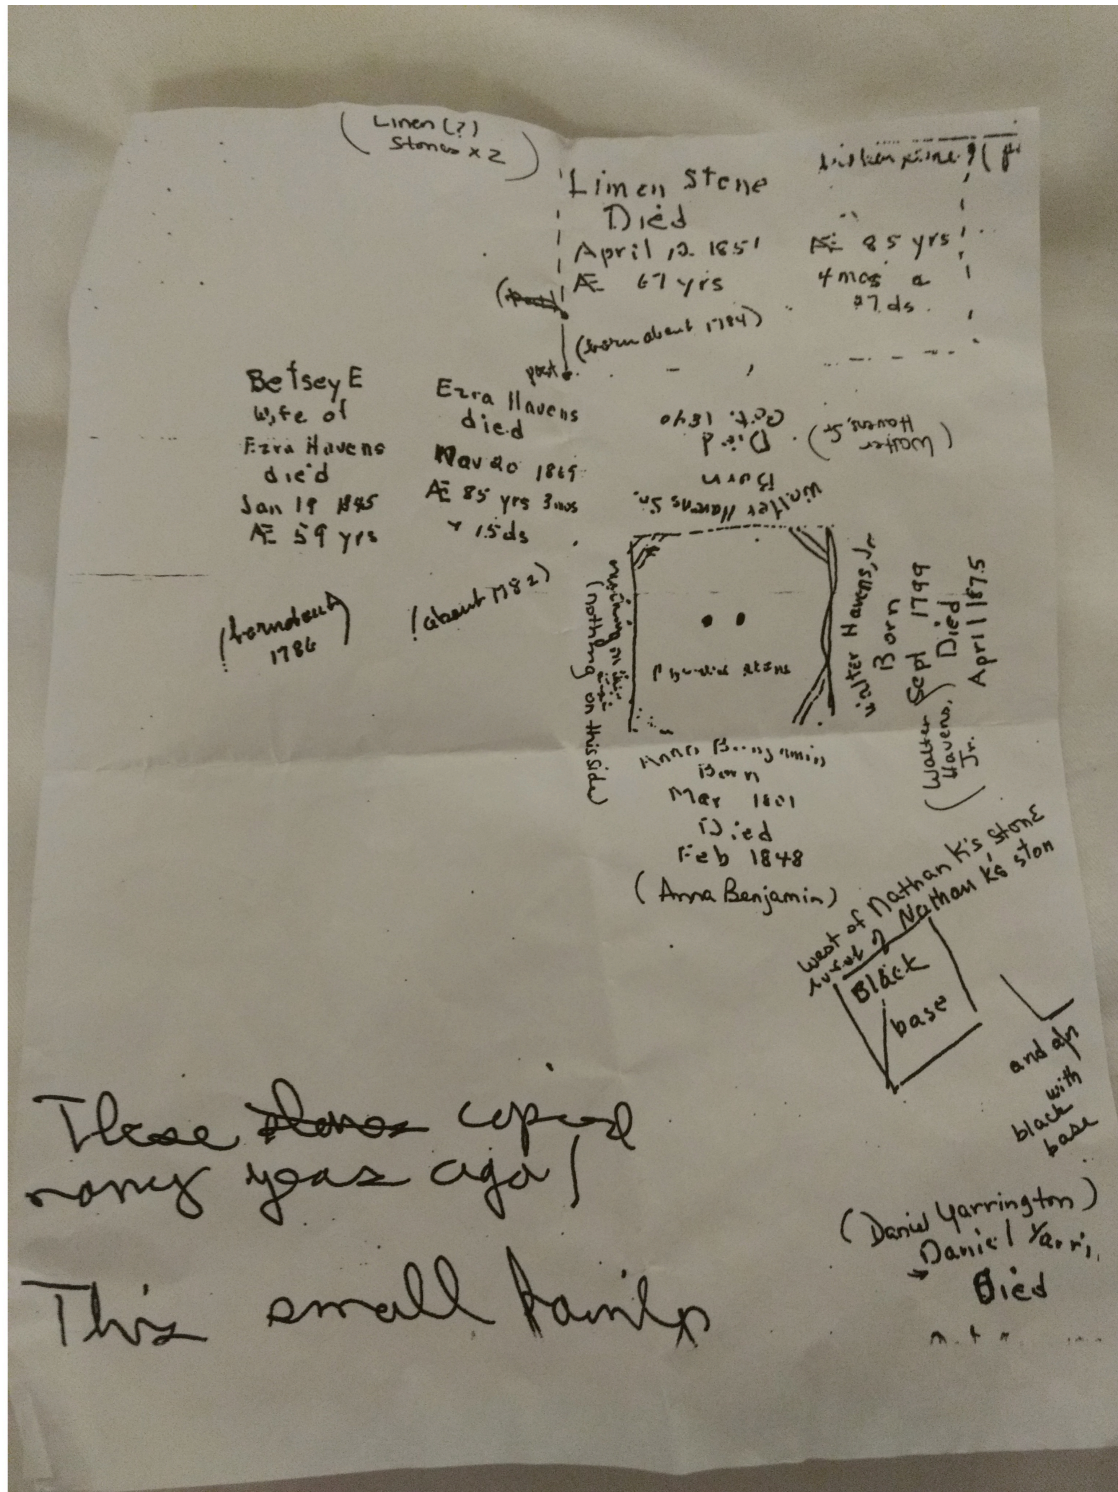 (Linen (?)
Stones x 2)
Limen Stone
Died
April 12. 1851
Æ 67 yrs
(born about 1784)
Æ 85 yrs
4 mos
27 ds.
post
Betsey E
wife of
Ezra Havens
died
Jan 19 1845
Æ 59 yrs
(born about
1786)
Ezra Havens
died
Nov 20 1869
Æ 85 yrs 3 mos
15 ds
(about 1782)
(Walter
Havens, Sr.)
Walter Havens Sr.
Born
Died
Oct. 1840
(nothing on this side)
stone
Walter Havens, Jr
Born
Sept 1799
Died
April 1875
(Walter
Havens,
Jr.
Anna Benjamin
Born
Mar 1801
Died
Feb 1848
(Anna Benjamin)
west of Nathan K's stone
Nathan K's ston
Black
base
and
with
black
base
(Daniel Yarrington)
Daniel Yarri
Died
These copied
many years ago!
This small family